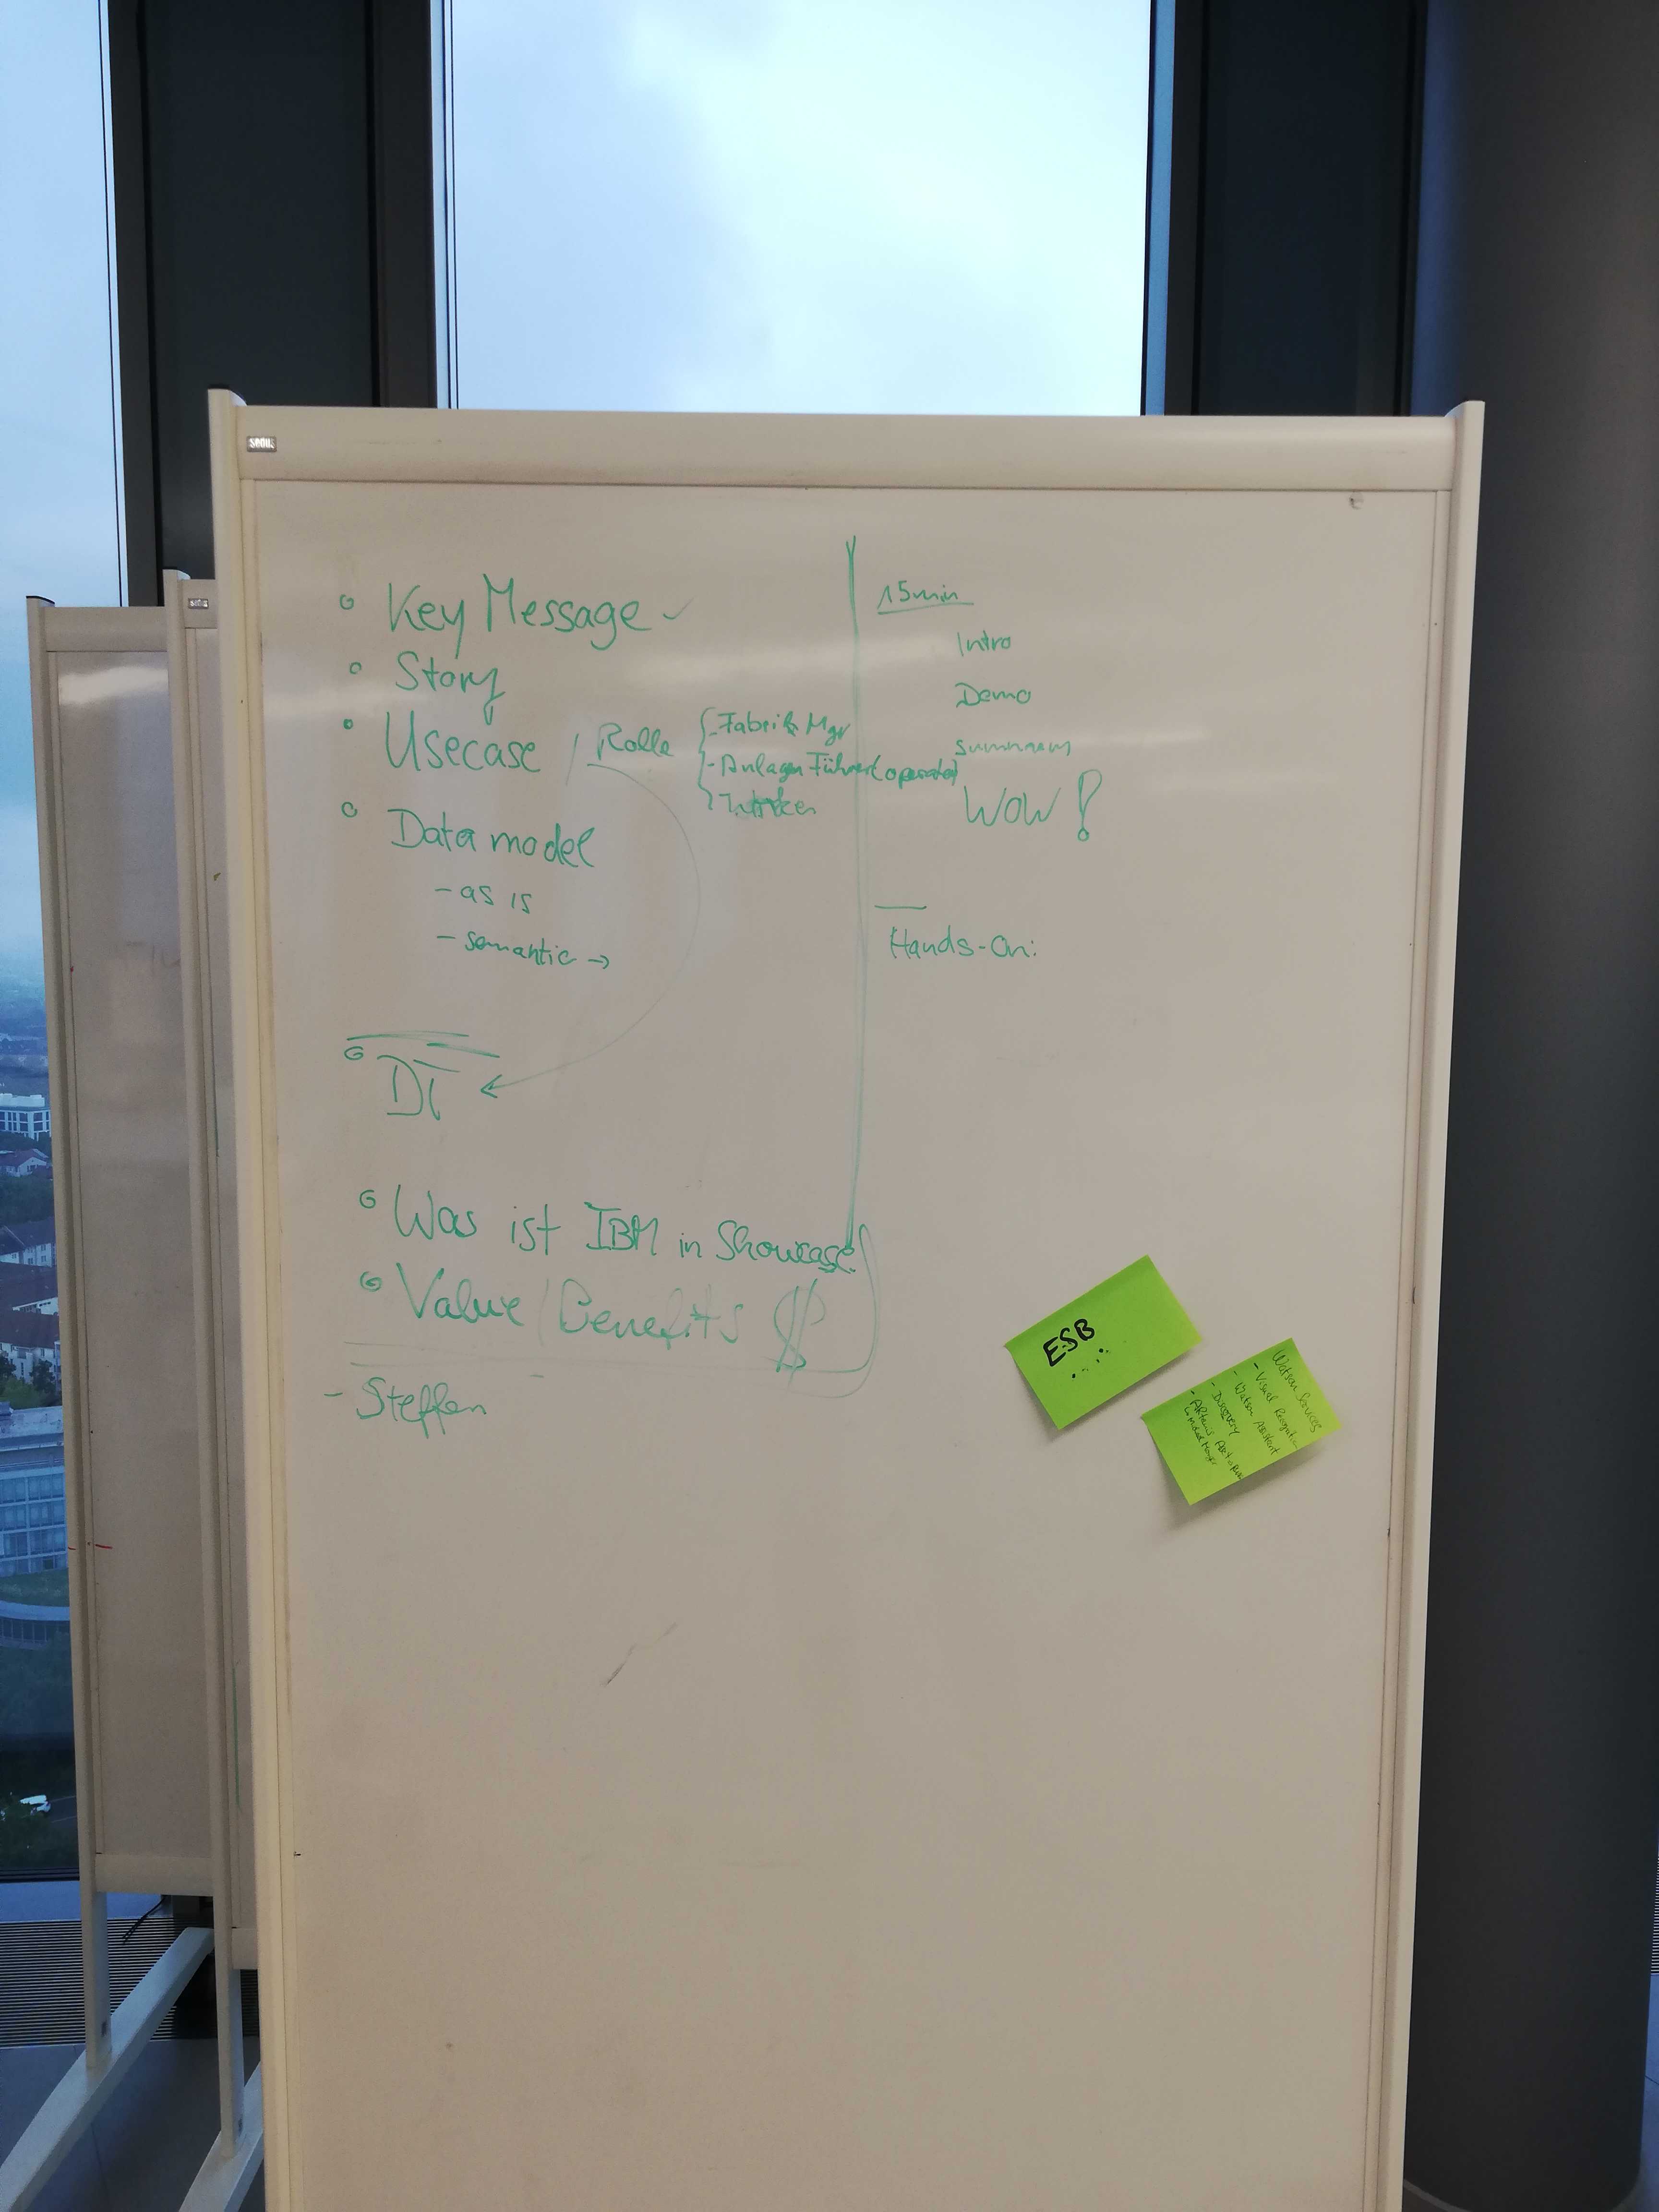 sedus
• Key Message ✓
• Story
• Usecase / Rolle { - Fabrik Mgr
- Anlagen Führer (operator)
• Data model
- as is
- semantic →
• DT
• Was ist IBM in Showcase
• Value / Benefits $
- Steffen
15min
Intro
Demo
Summary
WOW!
Hands-On:
ESB
...
Watson Services
- Visual Recognition
- Watson Assistant
- Discovery